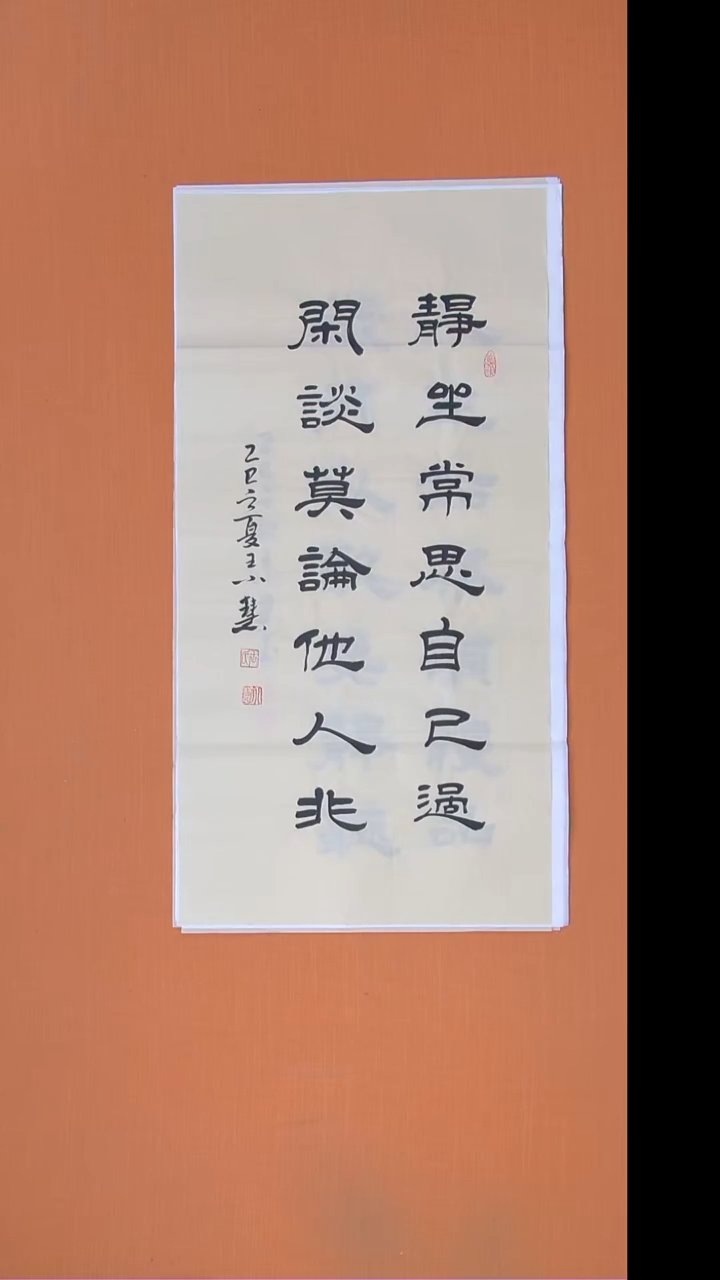 靜坐常思自己過
閑談莫論他人非
乙巳之夏王小慧